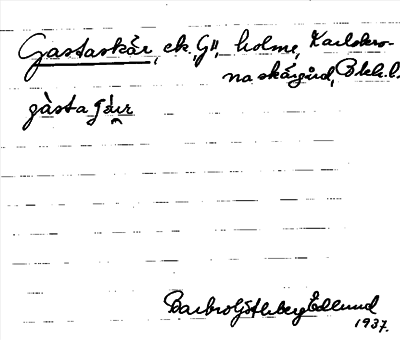 Gastaskär, ek. "G", holme, Karlskro-
na skärgård, Blek.l.
gàsta
Barbro Götlberg Edlund
1937.